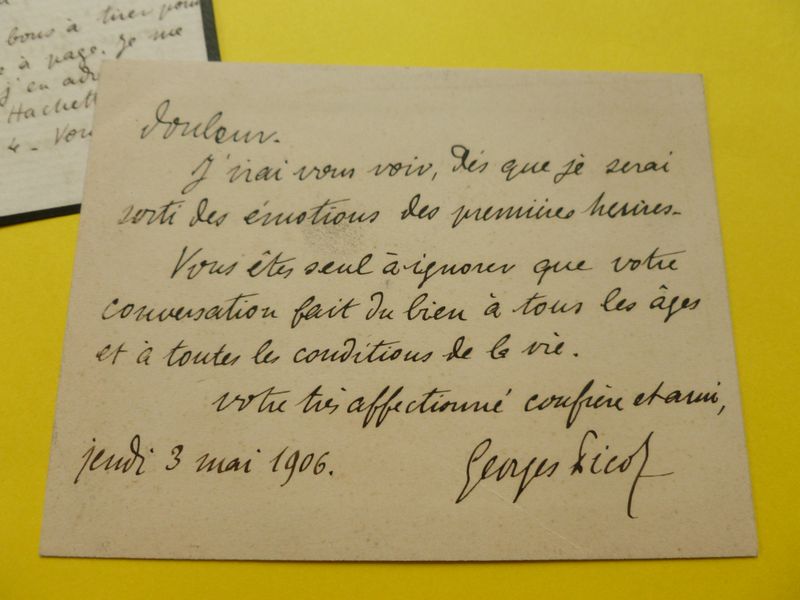 bons à tirer pour
à page. Je me
j'en adr
Hachett
4. Vou
douleur.
J'irai vous voir, dès que je serai
sorti des émotions des premières heures.
Vous êtes seul à ignorer que votre
conversation fait du bien à tous les âges
et à toutes les conditions de la vie.
votre très affectionné confrère et ami,
jeudi 3 mai 1906.
Georges Picot